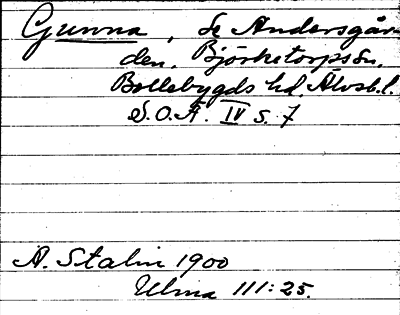 Gunna, se Andersgår
den. Björketorps sn.
Bollebygds hd. Älvsb. l.
S.O.Ä. IV s. 7
A. Stalin 1900
Ulma 111:25.